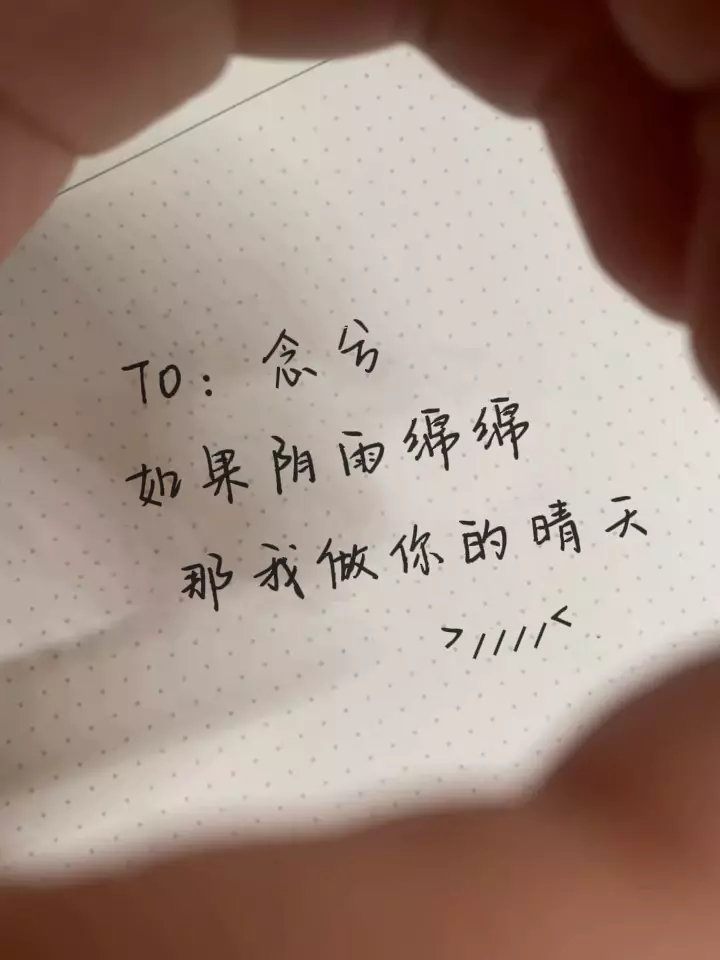 TO：念兮
如果阴雨绵绵
那我做你的晴天
>/////<